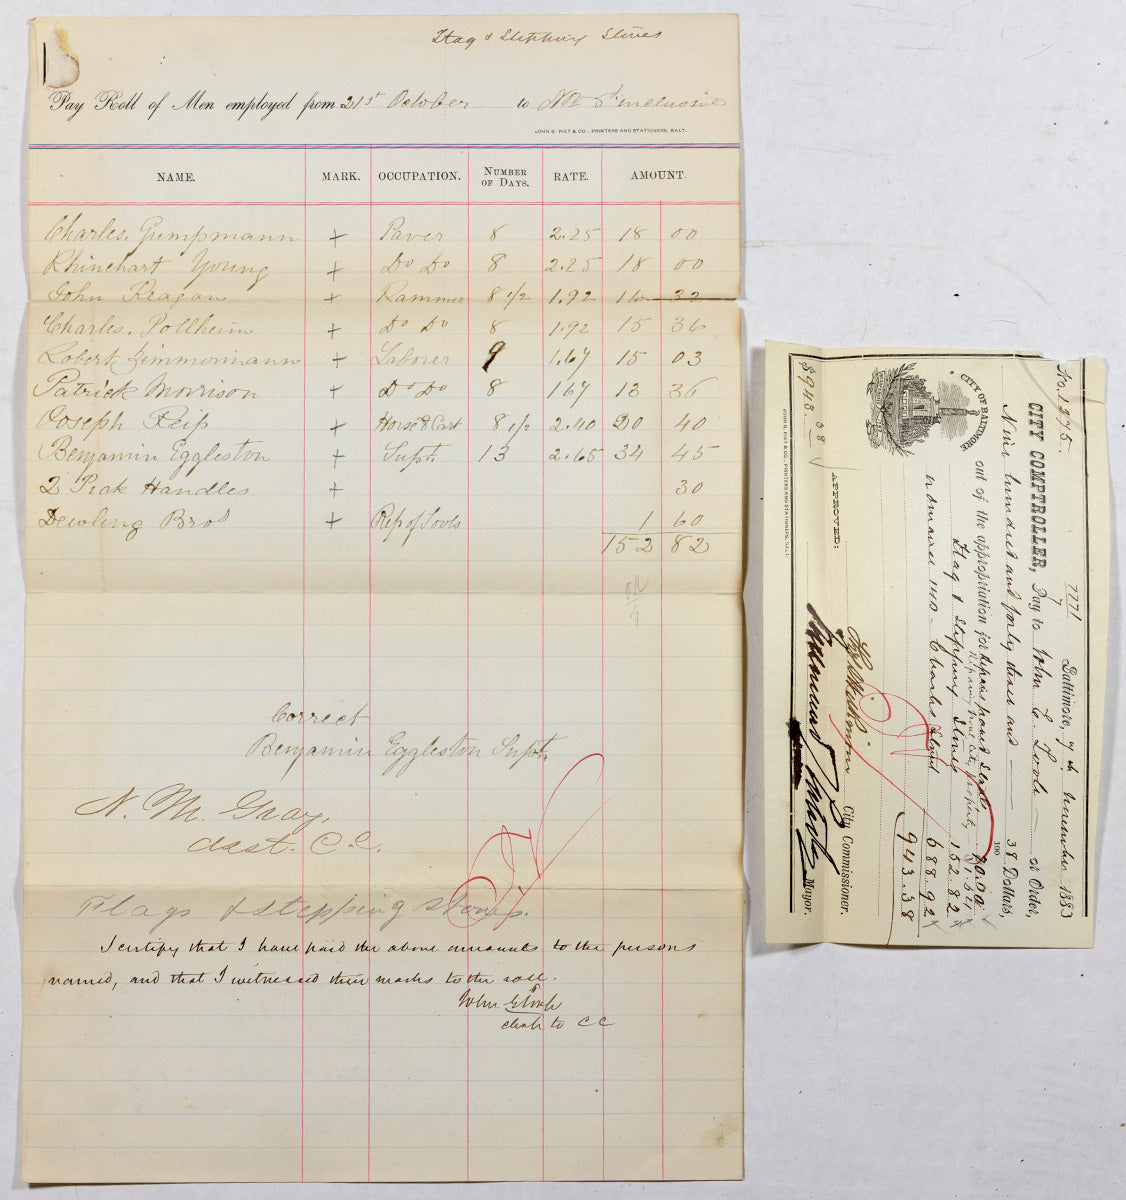 Flag & Stepping Stones
Pay Roll of Men employed from 21st October to Nov 5th inclusive
JOHN B. PIET & CO., PRINTERS AND STATIONERS, BALT.
NAME. MARK. OCCUPATION. NUMBER OF DAYS. RATE. AMOUNT.
Charles. Gumpmann + Paver 8 2.25 18 00
Rhinehart Young + Do Do 8 2.25 18 00
John Reagan + Rammer 8 1/2 1.92 16 32
Charles. Pollheim + Do Do 8 1.92 15 36
Robert Zimmormann + Laborer 9 1.67 15 03
Patrick Morrison + Do Do 8 1 67 13 36
Joseph Reip + Horse & Cart 8 1/2 2.40 20 40
Benjamin Eggleston + Supt. 13 2.65 34 45
2 Pick Handles + 30
Dewling Bros + Rep of Tools 1 60
152 82
Correct
Benjamin Eggleston Supt.
N. M. Gray,
Asst. C. C.
Flags & stepping stones.
I certify that I have paid the above amounts to the persons
named, and that I witnessed their marks to the roll.
clerk to C C
No. 1375. 7771 Baltimore, 9th November 1883
CITY COMPTROLLER, Pay to John C Toole or Order,
Nine hundred and forty three and 38/100 Dollars,
out of the appropriation for Repairs paved Streets 20.00
Repairing Genl. City property 81.64
Flag & Stepping Stones 152.82
Ordinance 110 - Charles Street 688.92
943.38
City Commissioner.
APPROVED:
Mayor.
$943.38
CITY OF BALTIMORE
JOHN B. PIET & CO., PRINTERS AND STATIONERS, BALT.